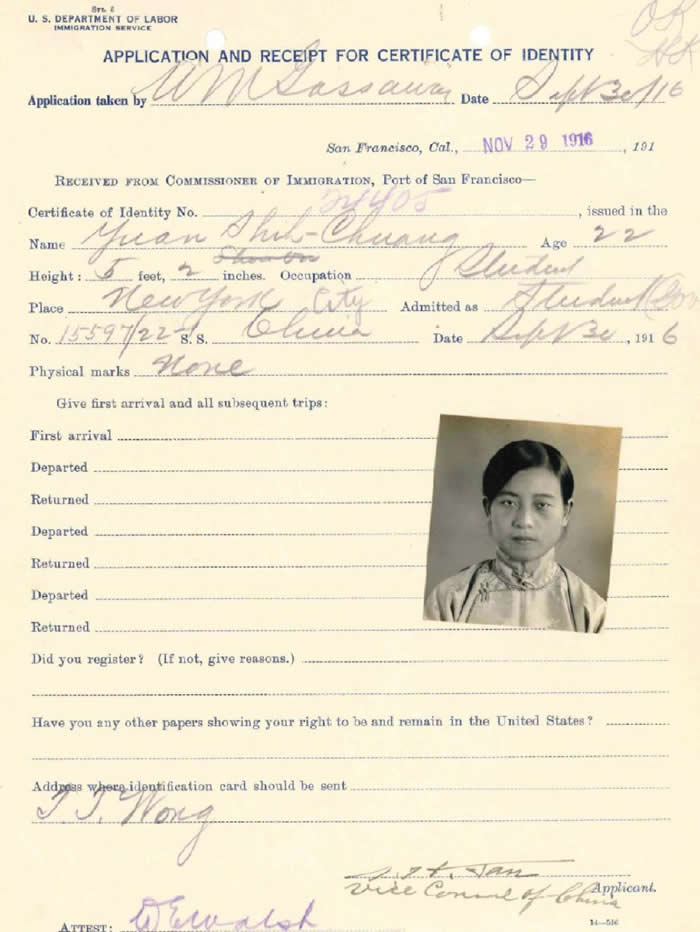 U. S. DEPARTMENT OF LABOR
IMMIGRATION SERVICE
OK
APPLICATION AND RECEIPT FOR CERTIFICATE OF IDENTITY
Application taken by W M Gassaway Date Sept 30/16
San Francisco, Cal., NOV 29 1916, 191
RECEIVED FROM COMMISSIONER OF IMMIGRATION, Port of San Francisco—
Certificate of Identity No. 24405, issued in the
Name Yuan Shih-Chuang Age 22
Height: 5 feet, 2 inches. Occupation Student
Place New York City Admitted as Student
No. 15597/22-1 S. S. China Date Sept 30, 1916
Physical marks None
Give first arrival and all subsequent trips:
First arrival
Departed
Returned
Departed
Returned
Departed
Returned
Did you register? (If not, give reasons.)
Have you any other papers showing your right to be and remain in the United States?
Address where identification card should be sent
T. T. Wong
Tan
Vice Consul of China Applicant.
ATTEST: W E Walsh
14—516